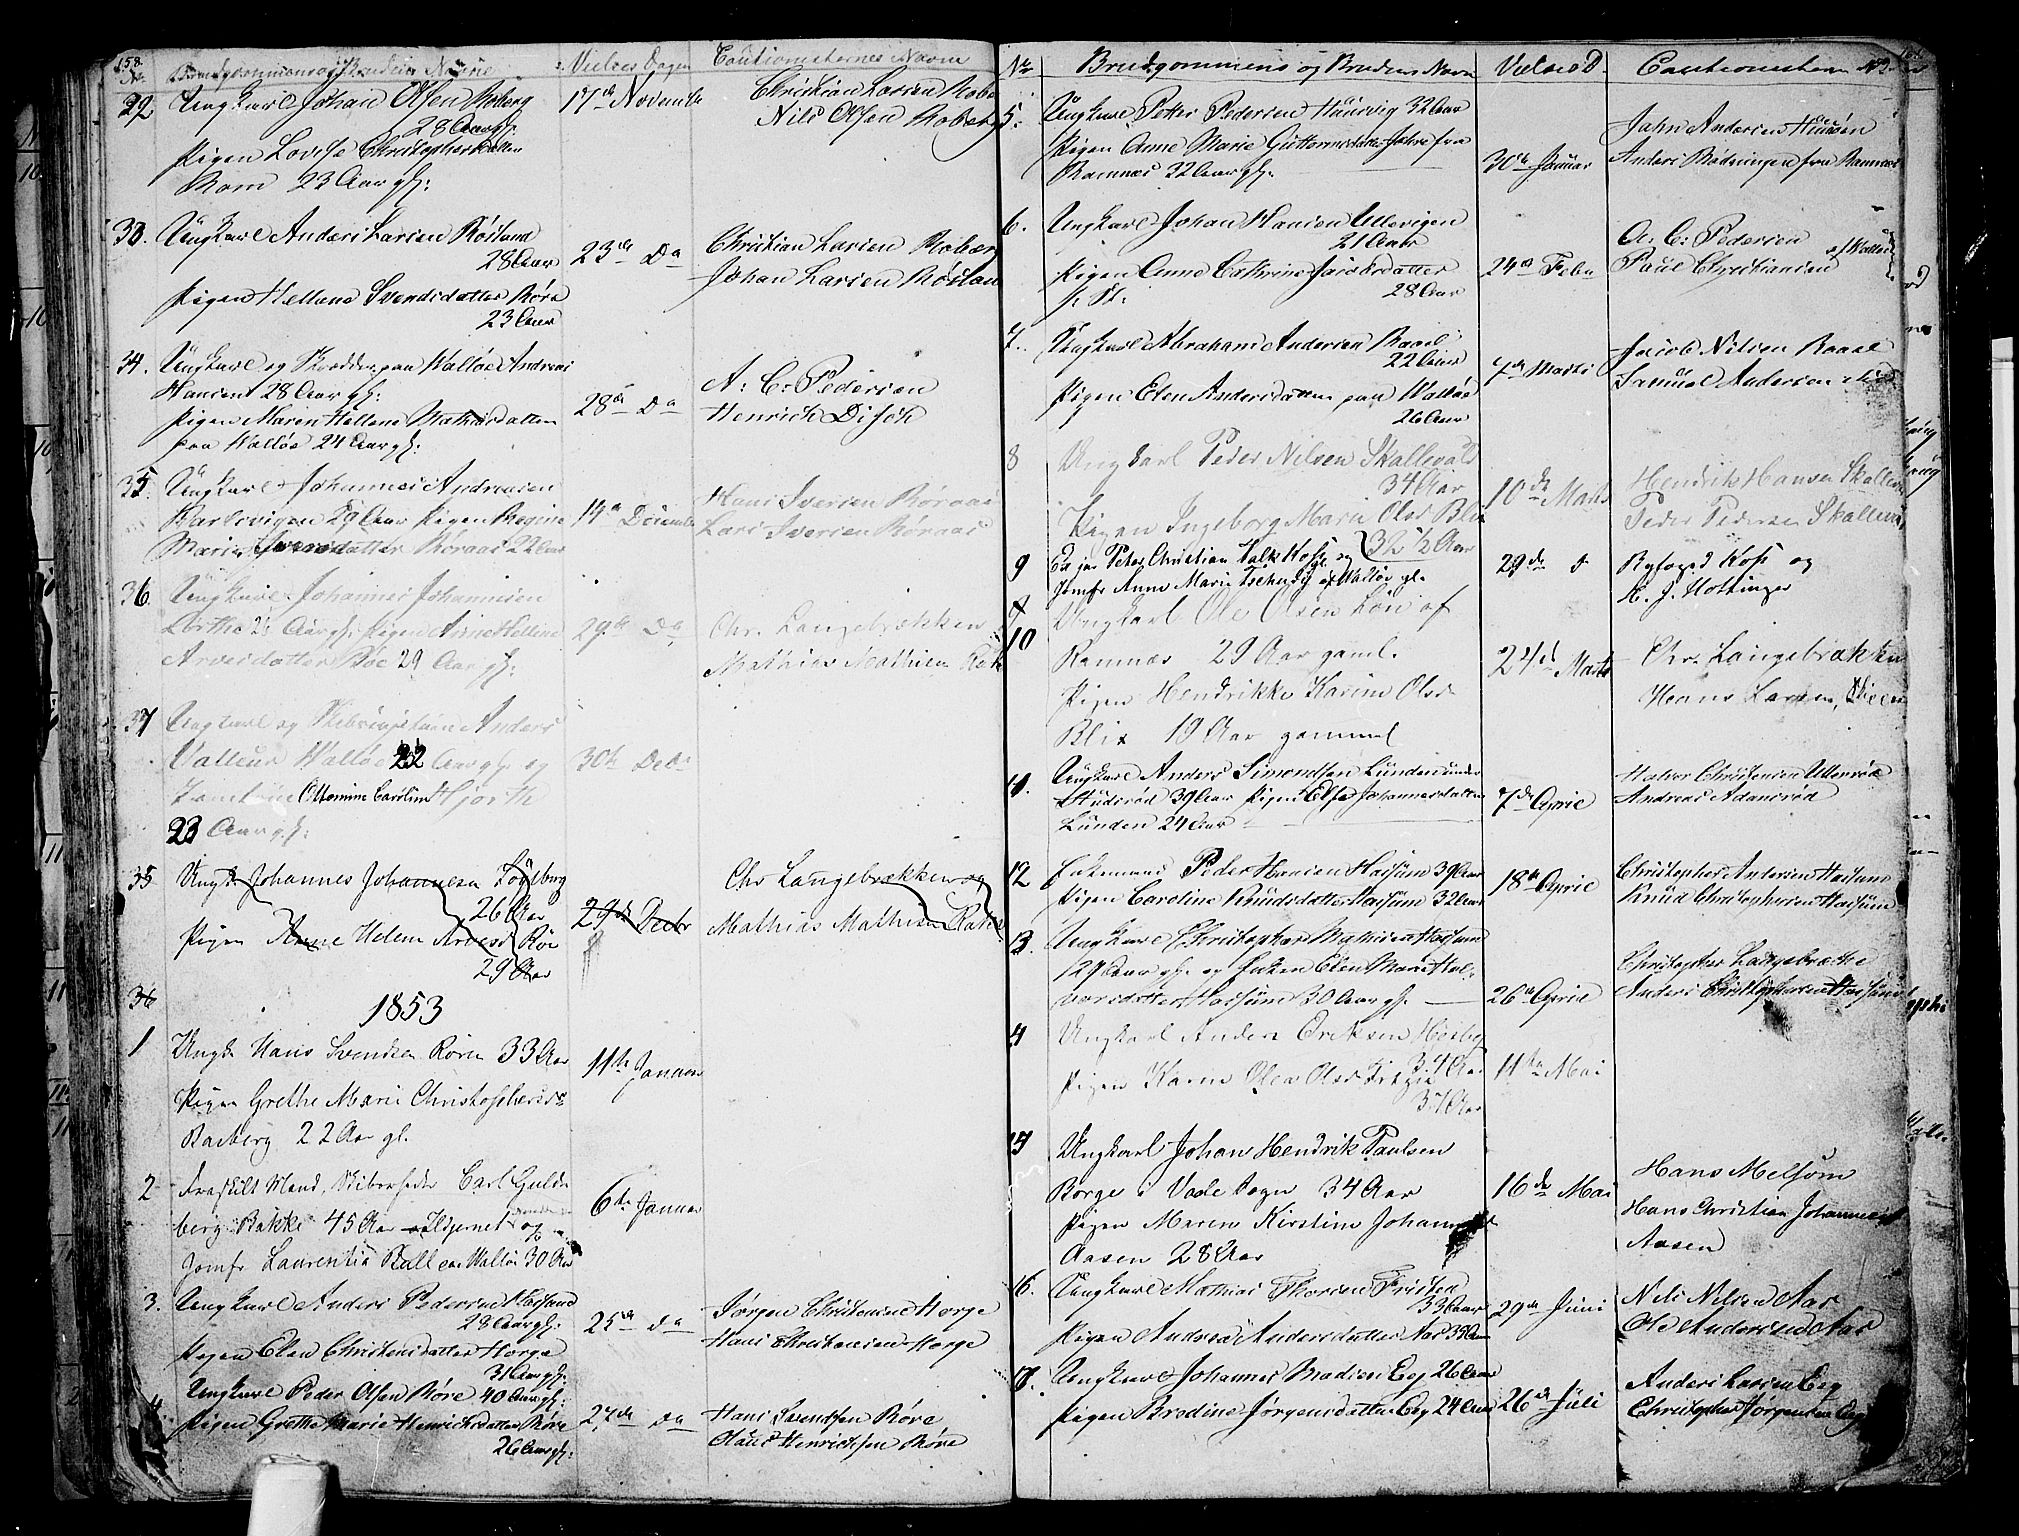 158.
No Brudgommens og Brudens Navne Vielses Dagen Cautionisternes Navne
32. Ungkarl Johan Olsen Roberg 17de Novembr Christian Larsen Robe
28 Aar gl: Nils Olsen Roberg
Pigen Lovise Christophersdatter
Rom 23 Aar gl:
33. Ungkarl Anders Larsen Røisland
28 Aar 23de Do Christian Larsen Roberg
Pigen Hellene Svendsdatter Røre Johan Larsen Røislan
23 Aar
34. Ungkarl og Skrædder paa Walløe Andreas
Hansen 28 Aar gl: 28de Do A: C: Pedersen
Pigen Maren Hellene Mathiasdatter Henrich Disch
paa Walløe 24 Aar gl:
35. Ungkarl Johannes Andreasen
Barkevigen 29 Aar Pigen Regine 14de Decembr Hans Iversen Røraas
Marie Iversdatter Røraas 22 Aar Lars Iversen Røraas
36. Ungkarl Johannes Johannesen
26 Aar gl. Pigen Anne Hellene 29de Do Chr. Langebrækken
Arvesdatter Røe 29 Aar gl: Mathias Mathisen
37 Ungkarl og Skibscapitain Anders
Valleur Walløe 22 Aar gl. og 30te Decbr
Ottomine Caroline Hjorth
23 Aar gl:
35 Ungk. Johannes Johannesen
26 Aar 29de Decbr Chr Langebrækken og
Pigen Anne Helene Arvesd Røe Mathias Mathisen
29 Aar
36 1853
1 Ungk Hans Svendsen Røren 33 Aar 11te Januar
Pigen Grethe Marie Christophersd
Basberg 22 Aar gl.
2 Fraskilt Mand, Skibsrheder Carl Guld
berg Bakke 45 Aar og 6te Januar
Jomfr Laurentia Paa Walløe 30 Aar
3. Ungkarl Anders Pedersen
28 Aar gl: 25de do Jørgen Christensen Horge
Pigen Elen Christensdatter Horge Hans Christensen Horge
31 Aar gl:
4. Ungkarl Peder Olsen Røre 40 Aar gl: 27de do Hans Svendsen Røre
Pigen Grethe Marie Henrichsdatter Røre Claus Henrichsen Røre
26 Aar gl:
No Brudgommens og Brudens Navn Vielses D. Cautionistern
5. Ungkarl Petter Pedersen Haugvig 32 Aar John Andersen
Pigen Anne Marie Guttormsdatter Jahre fra 30te Januar Anders Bødningen fra Ramnæs
Ramnæs 32 Aar gl.
6. Ungkarl Johan Hansen Ullevigen
21 Aar A. C: Pedersen
Pigen Anne Cathrine Jacobsdatter 24de Febr Paul Christiansen af Walløe
28 Aar
7. Ungkarl Abraham Andersen Raael Jacob Nilsen Raael
22 Aar 7de Marts Samuel Andersen
Pigen Elen Andersdatter paa Walløe
26 Aar
8 Ungkarl Peder Nilsen Skallevold
34 Aar 10de Marts Hendrik Hansen Skallevo
Pigen Ingeborg Marie Olsd Blix Peder Pedersen Skallevo
32 1/2 Aar
9 Ed jur Peter Christian Falk Koss og 29de d Byfoged Koss og
Jomfr Anne Marie Tschudy af Walløe gl. H. J. Hottinger
9 Ungkarl Ole Olsen Løn af
10 Ramnæs 29 Aar gaml. 24de Marts Chr. Langebrækken
Pigen Hendrikke Karine Olsd Hans Larsen,
Blix 19 Aar gammel
11. Ungkarl Anders Simondsen Lunden under 7de April Halvor Christensen Ullerød
39 Aar Pigen Else Johannesdatter Andreas Adamsrød
Lunden 24 Aar
12 Enkemand Peder Hansen Hassum 39 Aar 18de April Christopher Andersen Hassum
Pigen Caroline Knudsdatter Hassum 32 Aar Knud Christophersen Hassum
13. Ungkarl Christopher Mathisen Hassum
29 Aar gl. og Enken Elen Marie Hal- 26de April Christopher Langebrække
vorsdatter Hassum 30 Aar gl. Anders Christophersen Hassum
14 Ungkarl Anders Eriksen Hesby
34 Aar 11te Mai
Pigen Karen Olea Olsd
37 Aar
15 Ungkarl Johan Hendrik Paulsen
Borge i Vaale Sogn 34 Aar 16de Mai Hans Melsom
Pigen Maren Kirstine Johannesd Hans Christian Johannesen
Aasen 28 Aar Aasen
16. Ungkarl Mathias Thorsen Fresten
33 Aar 29de Juni Nils Nilsen Aas
Pigen Andrea Andersdatter Aas 35 Aar Ole Andersen Aas
17. Ungkarl Johannes Madsen Eeg 26 Aar 26de Juli Anders Larsen Eeg
Pigen Bredine Jørgensdatter Eeg 24 Aar Christopher Jørgensen Eeg